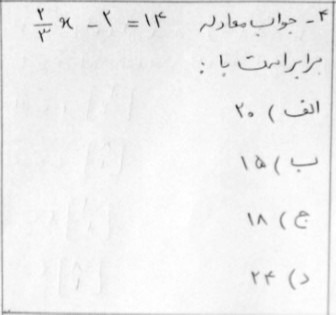 ۴- جواب معادله ۲/۳ x - ۲ = ۱۴
برابر است با :
الف ) ۲۰
ب ) ۱۵
ج ) ۱۸
د ) ۲۴